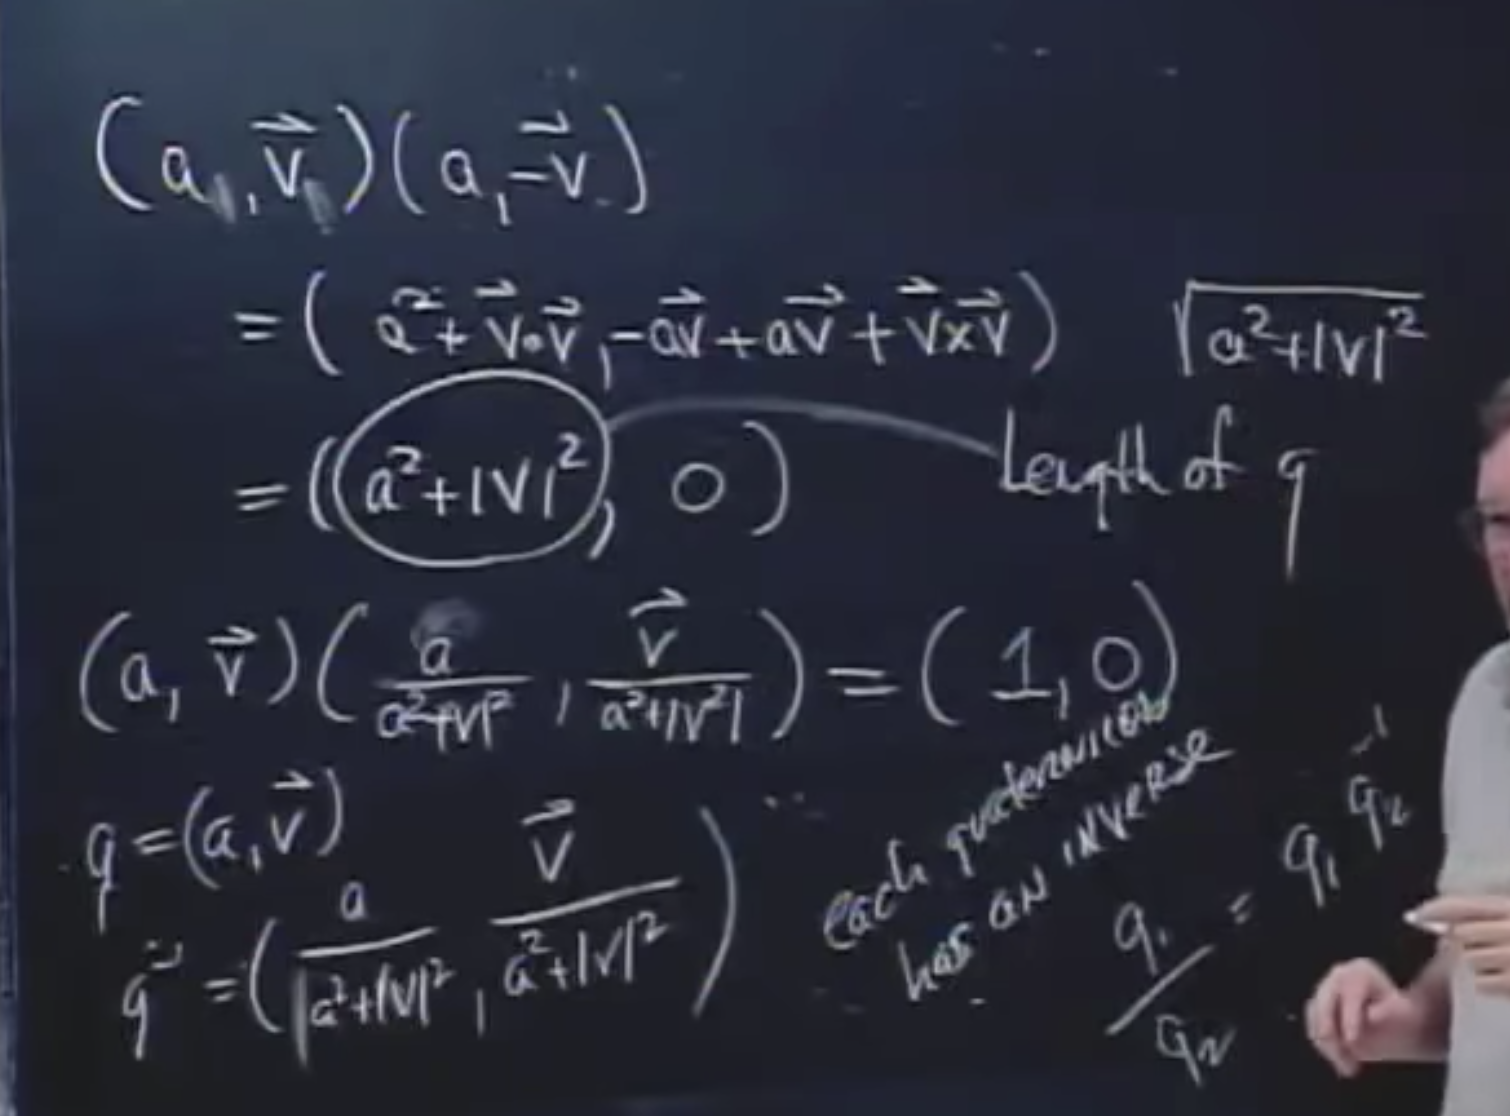 (a, v⃗)(a, -v⃗)
= (a² + v⃗·v⃗, -av⃗ + av⃗ + v⃗×v⃗) √(a²+|v|²)
= (a²+|v|², 0) Length of q
(a, v⃗)(a/(a²+|v|²), v⃗/(a²+|v²|)) = (1, 0)
q = (a, v⃗)
q⁻¹ = (a/(a²+|v|²), v⃗/(a²+|v|²))
each quaternion
has an inverse
q₁/q₂ = q₁ q₂⁻¹